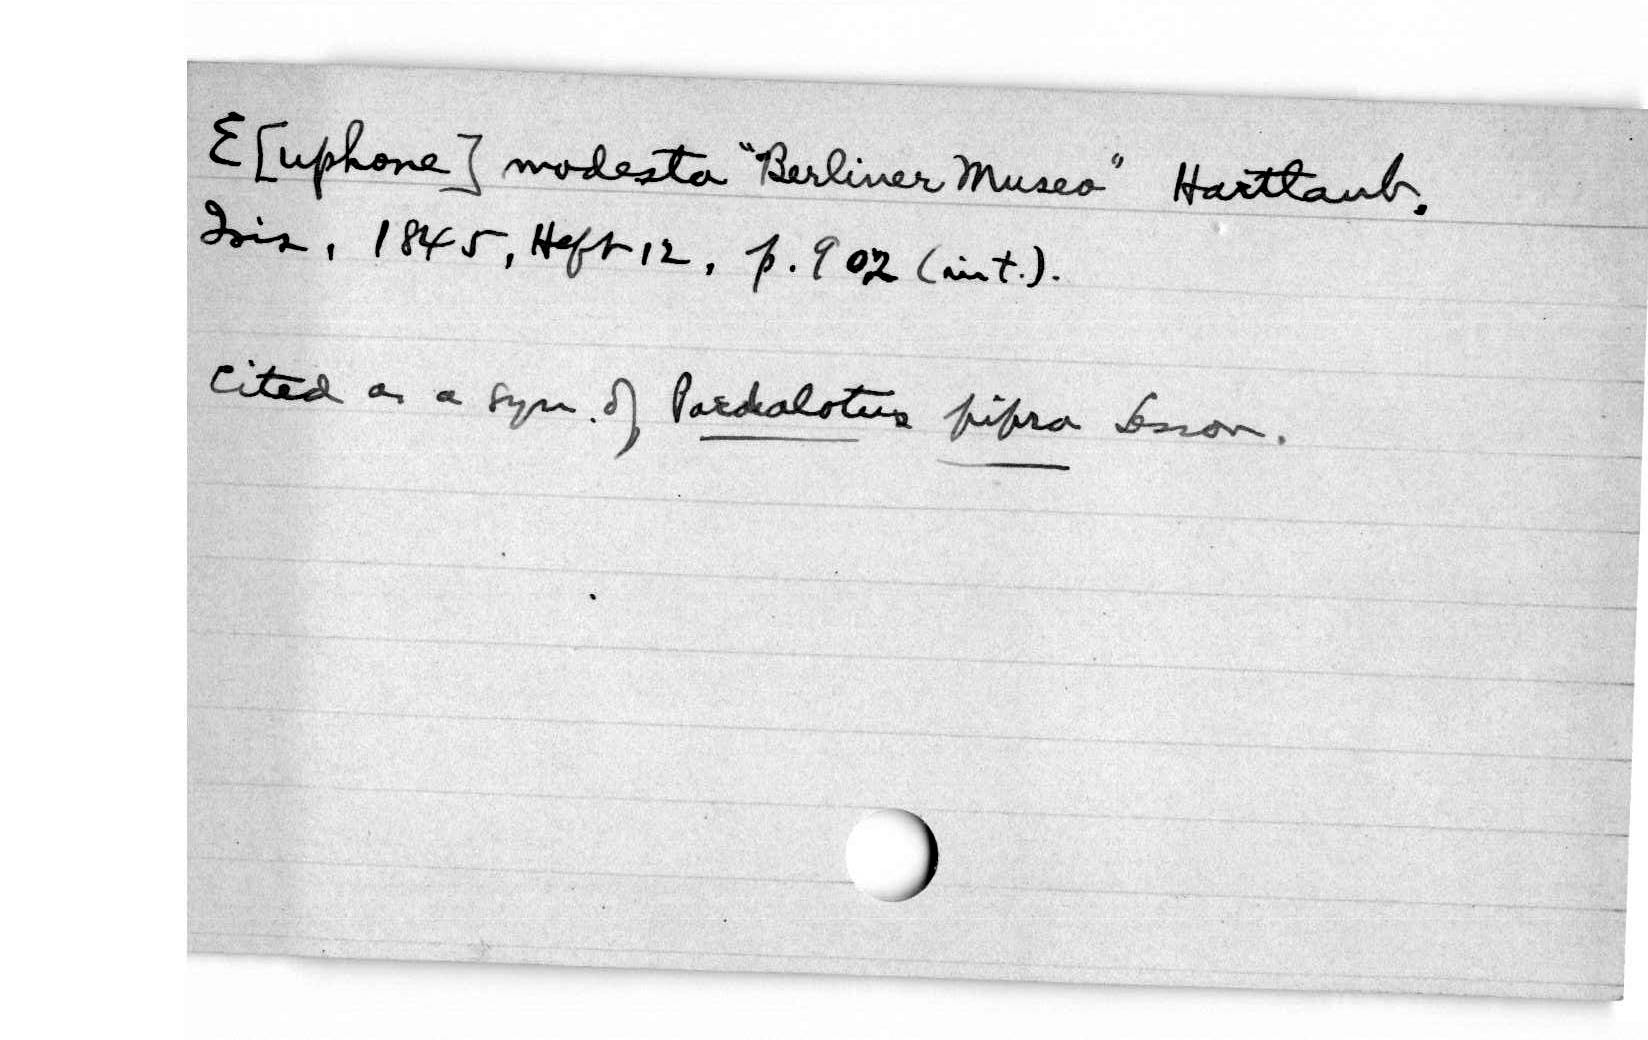 E[uphone] modesta "Berliner Museo" Hartlaub,
Isis, 1845, Heft 12, p. 902 (in t.).
Cited as a syn. of Pardalotus pipra Lesson.